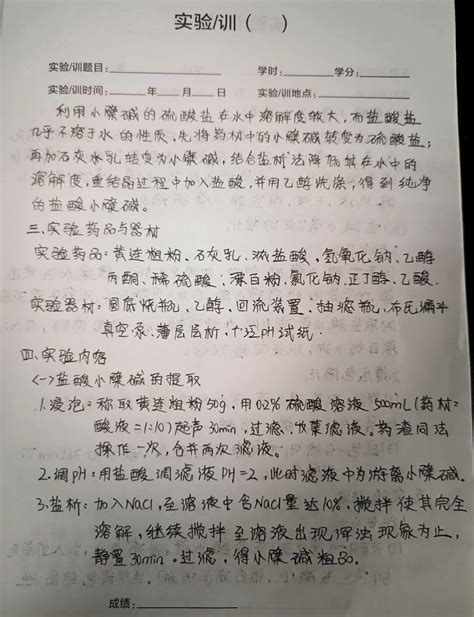 实验/训（ ）
实验/训题目： 学时： 学分：
实验/训时间： 年 月 日 实验/训地点：
利用小檗碱的硫酸盐在水中溶解度较大，而盐酸盐
几乎不溶于水的性质，先将药材中的小檗碱转变为硫酸盐；
再加石灰水乳转变为小檗碱，结合盐析法降低其在水中的
溶解度，重结晶过程中加入盐酸，并用乙醇洗涤，得到纯净
的盐酸小檗碱。
三.实验药品与器材
实验药品：黄连粗粉、石灰乳、浓盐酸、氢氧化钠、乙醇
丙酮、稀硫酸、漂白粉、氯化钠、正丁醇、乙酸.
实验器材：圆底烧瓶、乙醇、回流装置、抽滤瓶、布氏漏斗
真空泵、薄层层析、pH试纸.
四.实验内容
<一>盐酸小檗碱的提取
1.浸泡：称取黄连粗粉50g，用0.2%硫酸溶液500mL(药材：
酸液=1:10)超声30min，过滤，收集滤液。药渣同法
操作一次，合并两次滤液。
2.调pH：用盐酸调滤液pH=2，此时滤液中为游离小檗碱.
3.盐析：加入NaCl，至溶液中含NaCl量达10%，搅拌使其完全
溶解，继续搅拌至溶液出现浑浊现象为止，
静置30min.过滤，得小檗碱粗品.
成绩：